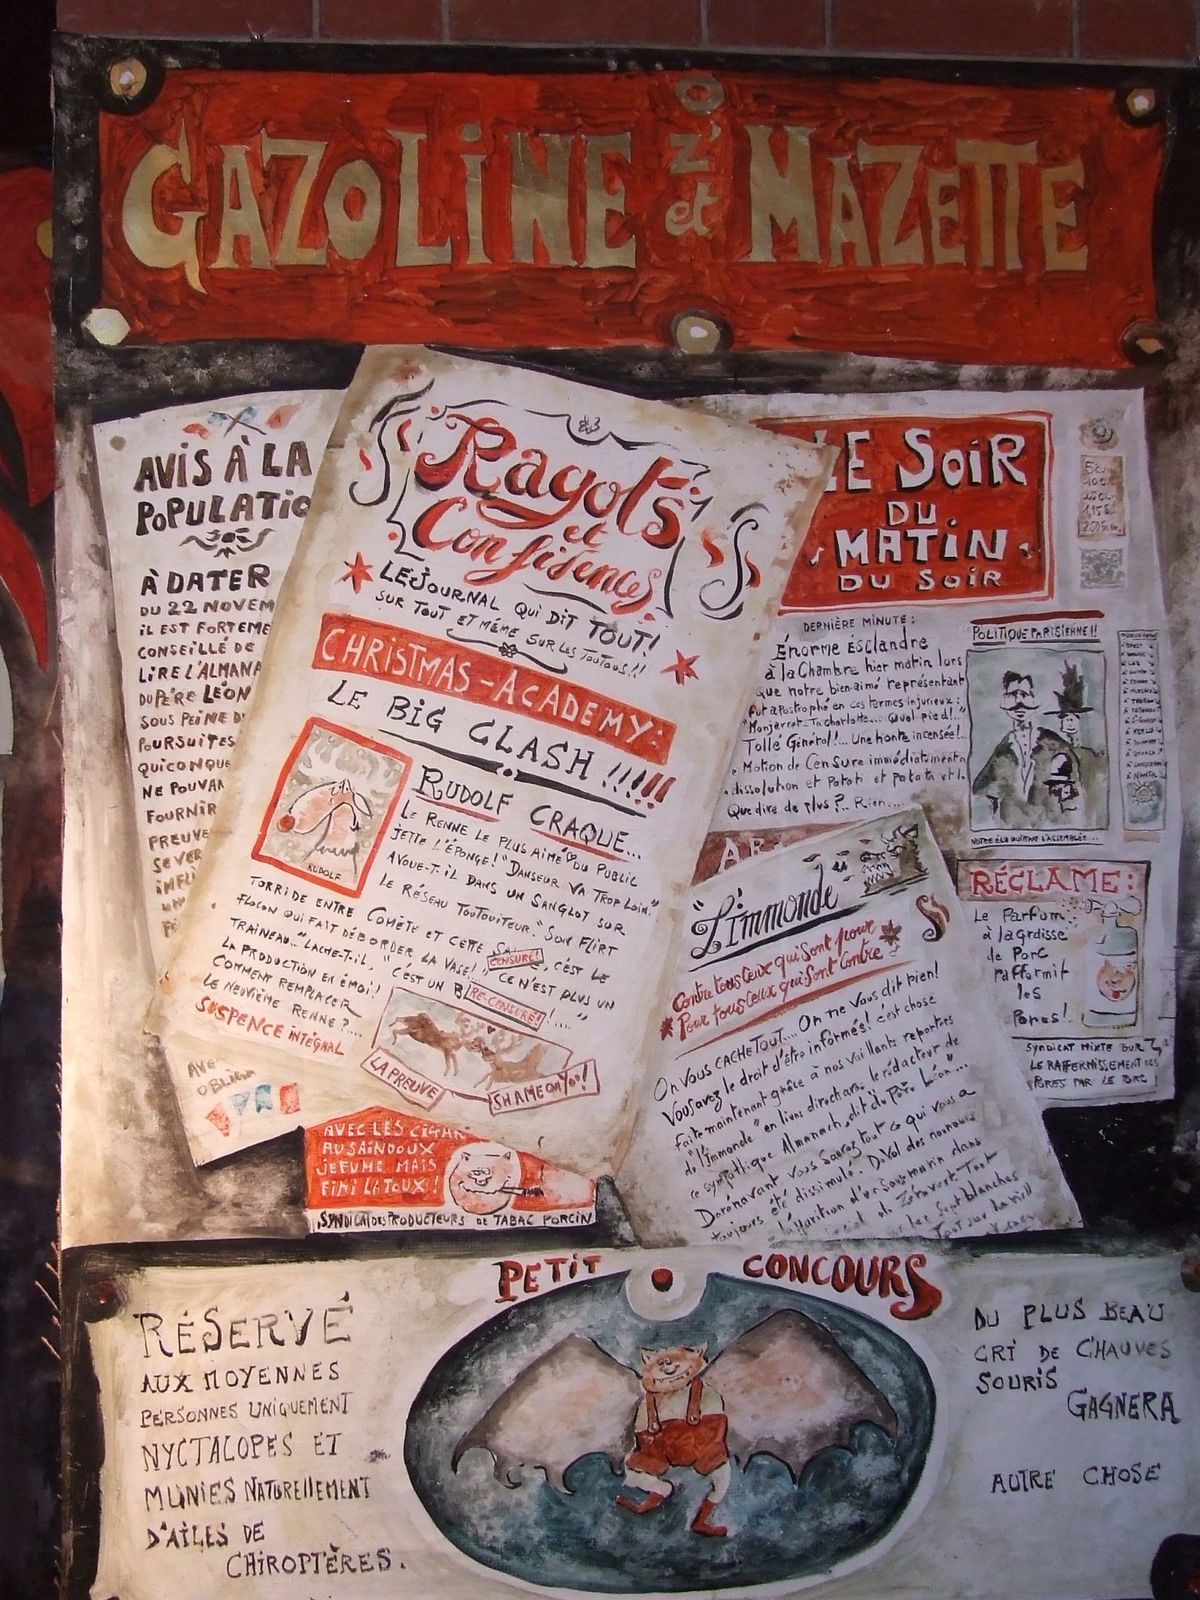 GAZOLINE OZ' et MAZETTE
AVIS À LA
POPULATIO
À DATER
DU 22 NOVEM
IL EST FORTEME
CONSEILLÉ DE
LIRE L'ALMANA
DU PÈRE LÉON
SOUS PEINE D'
POURSUITES
QUICONQUE
NE POUVAN
FOURNIR
PREUVE
SE VER
AVE
OBLIGA
Ragots
et
Confisences
LE JOURNAL QUI DIT TOUT!
SUR TOUT ET MÊME SUR LES TOUTOUS!!
CHRISTMAS-ACADEMY:
LE BIG CLASH !!!!!
RUDOLF CRAQUE...
LE RENNE LE PLUS AIMÉ DU PUBLIC
JETTE L'ÉPONGE! "DANSEUR VA TROP LOIN."
AVOUE-T-IL DANS UN SANGLOT SUR
LE RÉSEAU TOUTOUITEUR. "SON FLIRT
RUDOLF
TORRIDE ENTRE COMÈTE ET CETTE CENSURÉ!, C'EST LE
FLOCON QUI FAIT DÉBORDER LA VASE!" CE N'EST PLUS UN
TRAINEAU..." LACHE-T-IL, "C'EST UN B RE-CENSURÉ!...."
LA PRODUCTION EN ÉMOI!
COMMENT REMPLACER
LE NEUVIÈME RENNE?....
SUSPENCE INTÉGRAL
LA PREUVE
SHAME ON YOU!
AVEC LES CIGAR
AU SAINDOUX
JE FUME MAIS
FINI LA TOUX!
SYNDICAT DES PRODUCTEURS DE TABAC PORCIN
LE SOIR
DU
MATIN
DU SOIR
DERNIÈRE MINUTE:
Énorme Ésclandre
à la Chambre hier matin lors
que notre bien-aimé représentant
fut apostrophé en ces termes injurieux:
"Monjarret-Ta charlotte... Quel pied!.."
Tollé Général!... Une honte incensée!..
Motion de Censure immédiatement
dissolution et Patati et patata et l
Que dire de plus?.. Rien....
POLITIQUE PARISIENNE!!
NOTRE ÉLU QUITTANT L'ASSEMBLÉE....
RÉCLAME:
Le Parfum
à la graisse
de Porc
raffermit
les
Pores!
SYNDICAT MIXTE POUR
LE RAFFERMISSEMENT DES
PORES PAR LE PORC!
AR
"L'immonde"
Contre tous ceux qui sont pour
Pour tous ceux qui sont contre
On vous CACHE TOUT.... On ne vous dit rien!
Vous avez le droit d'être informés! c'est chose
faite maintenant grâce à nos vaillants reporters
de "l'immonde" en liens directs avec le rédacteur de
ce sympathique Almanach, dit du Père Léon...
Dorénavant vous saurez tout ce qui vous a
toujours été dissimulé. Du Val des nounours
à l'apparition d'un sous-marin dans
PETIT CONCOURS
RÉSERVÉ
AUX MOYENNES
PERSONNES UNIQUEMENT
NYCTALOPES ET
MUNIES NATURELLEMENT
D'AILES DE
CHIROPTÈRES.
DU PLUS BEAU
CRI DE CHAUVES
SOURIS
GAGNERA
AUTRE CHOSE